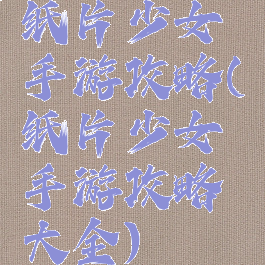 纸片少女
手游攻略(
纸片少女
手游攻略
大全)